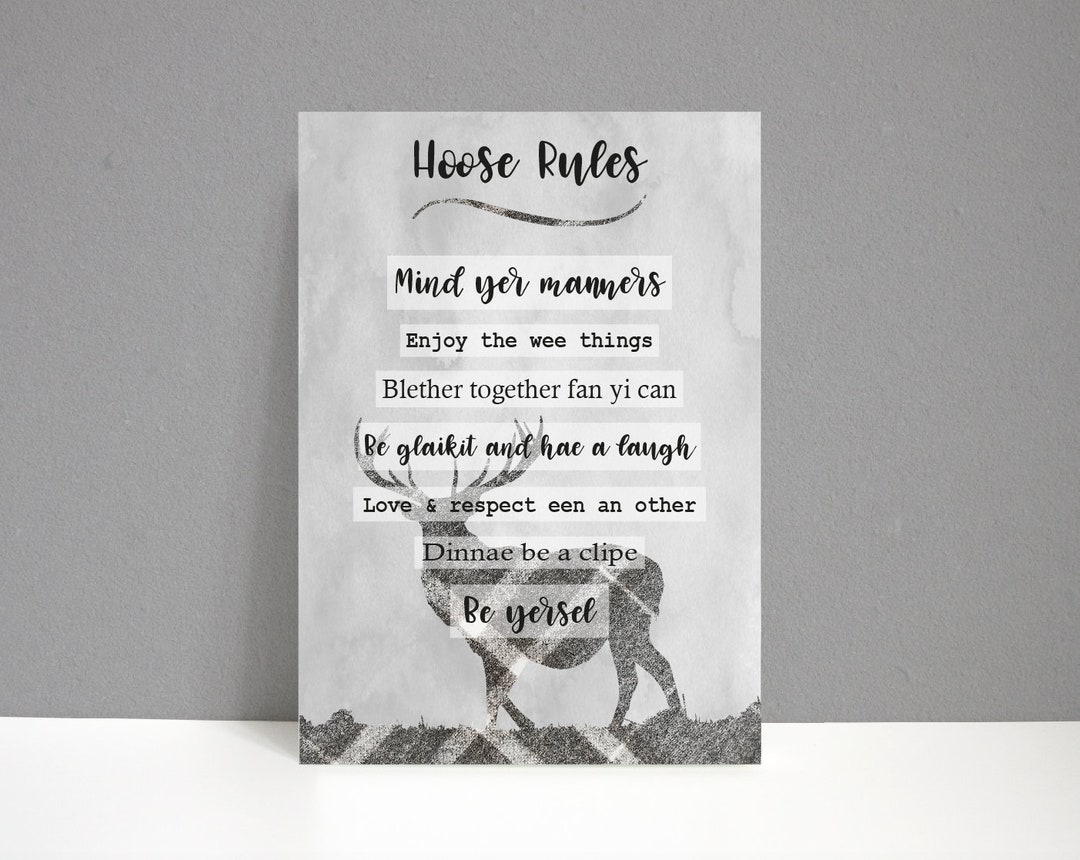 Hoose Rules
Mind yer manners
Enjoy the wee things
Blether together fan yi can
Be glaikit and hae a laugh
Love & respect een an other
Dinnae be a clipe
Be yersel